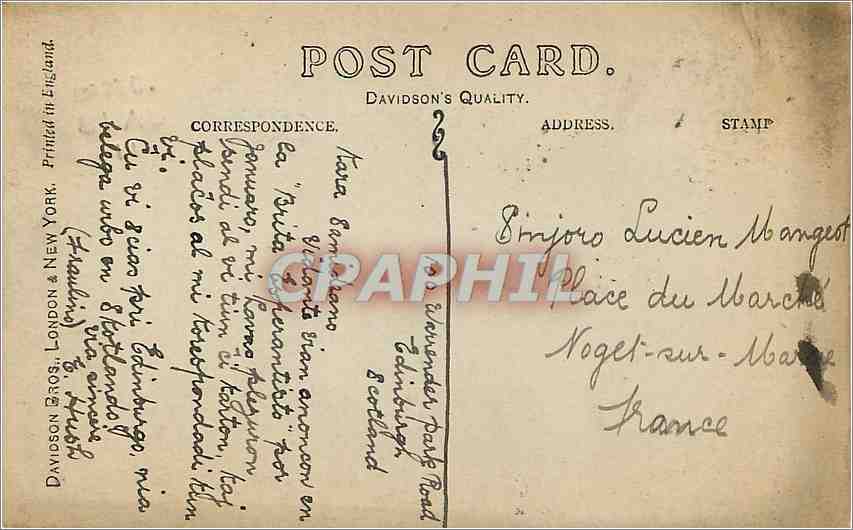 POST CARD.
DAVIDSON'S QUALITY.
CORRESPONDENCE.
ADDRESS.
STAMP
DAVIDSON BROS., LONDON & NEW YORK. Printed in England.
Warrender Park Road
Edinburgh
Scotland
Kara Samideano
Vidante vian anoncon en
la "Brita Esperantisto" por
Januaro, mi havas plezuron
sendi al vi tiun ĉi karton, kaj
plaĉos al mi korespondadi kun
vi.
Ĉu vi scias pri Edinburgo, nia
belega urbo en Skotlando?
Via sincere
(Fraŭlino) E. Hush
Sinjoro Lucien Mangeot
Place du Marché
Noget-sur-Marne
France
CPAPHIL